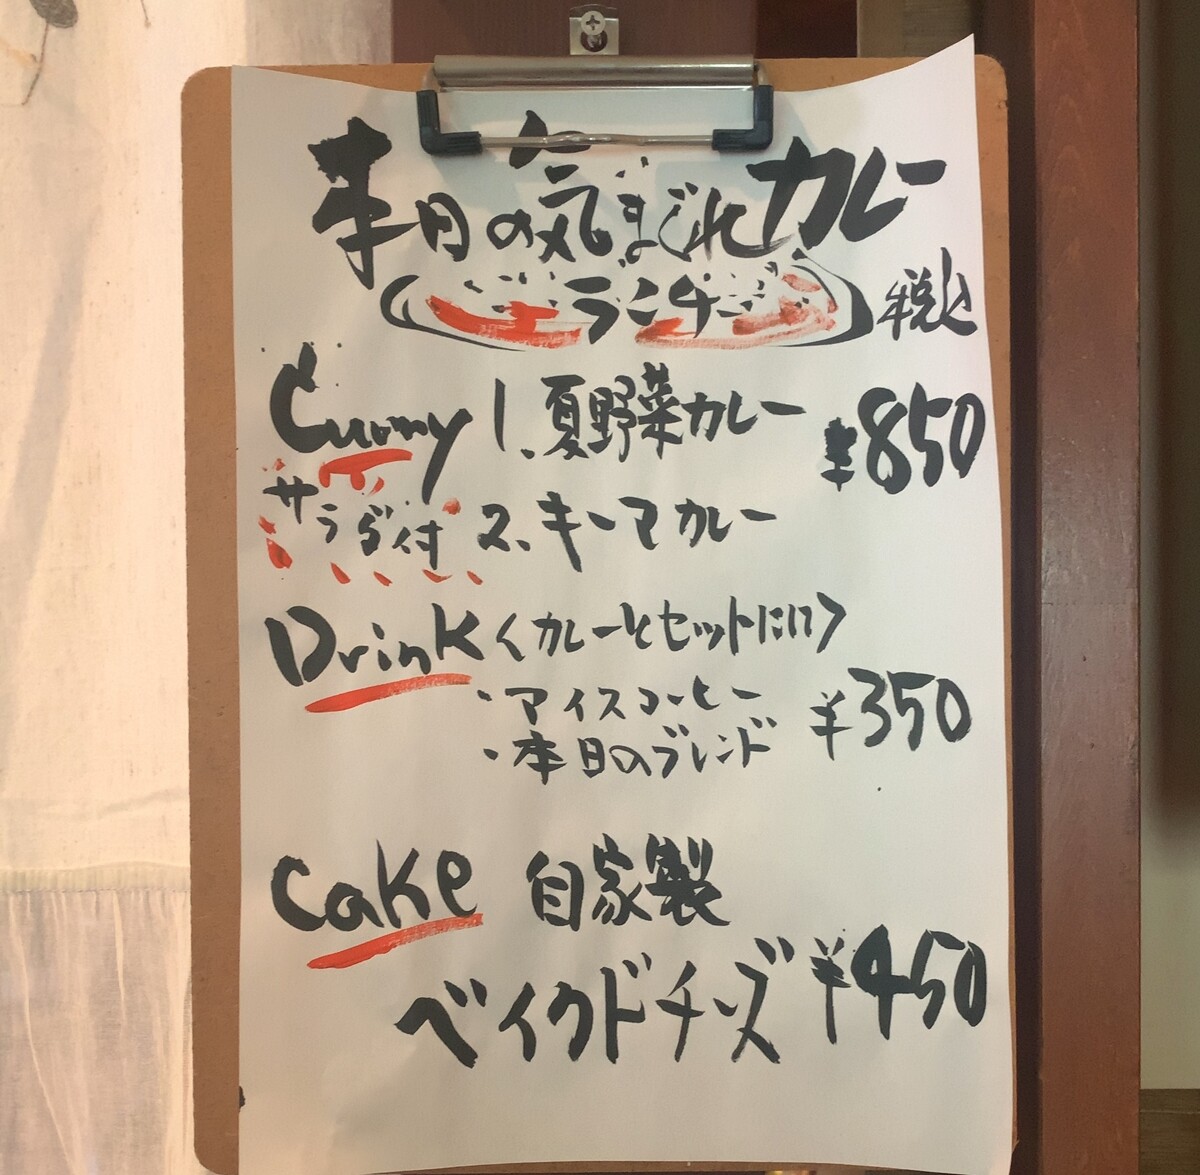 本日の気まぐれカレー
ランチ 税込
Curry 1、夏野菜カレー ¥850
サラダ付 2、キーマカレー
Drink〈カレーとセットに!!〉
・アイスコーヒー ¥350
・本日のブレンド
Cake 自家製
ベイクドチーズ ¥450